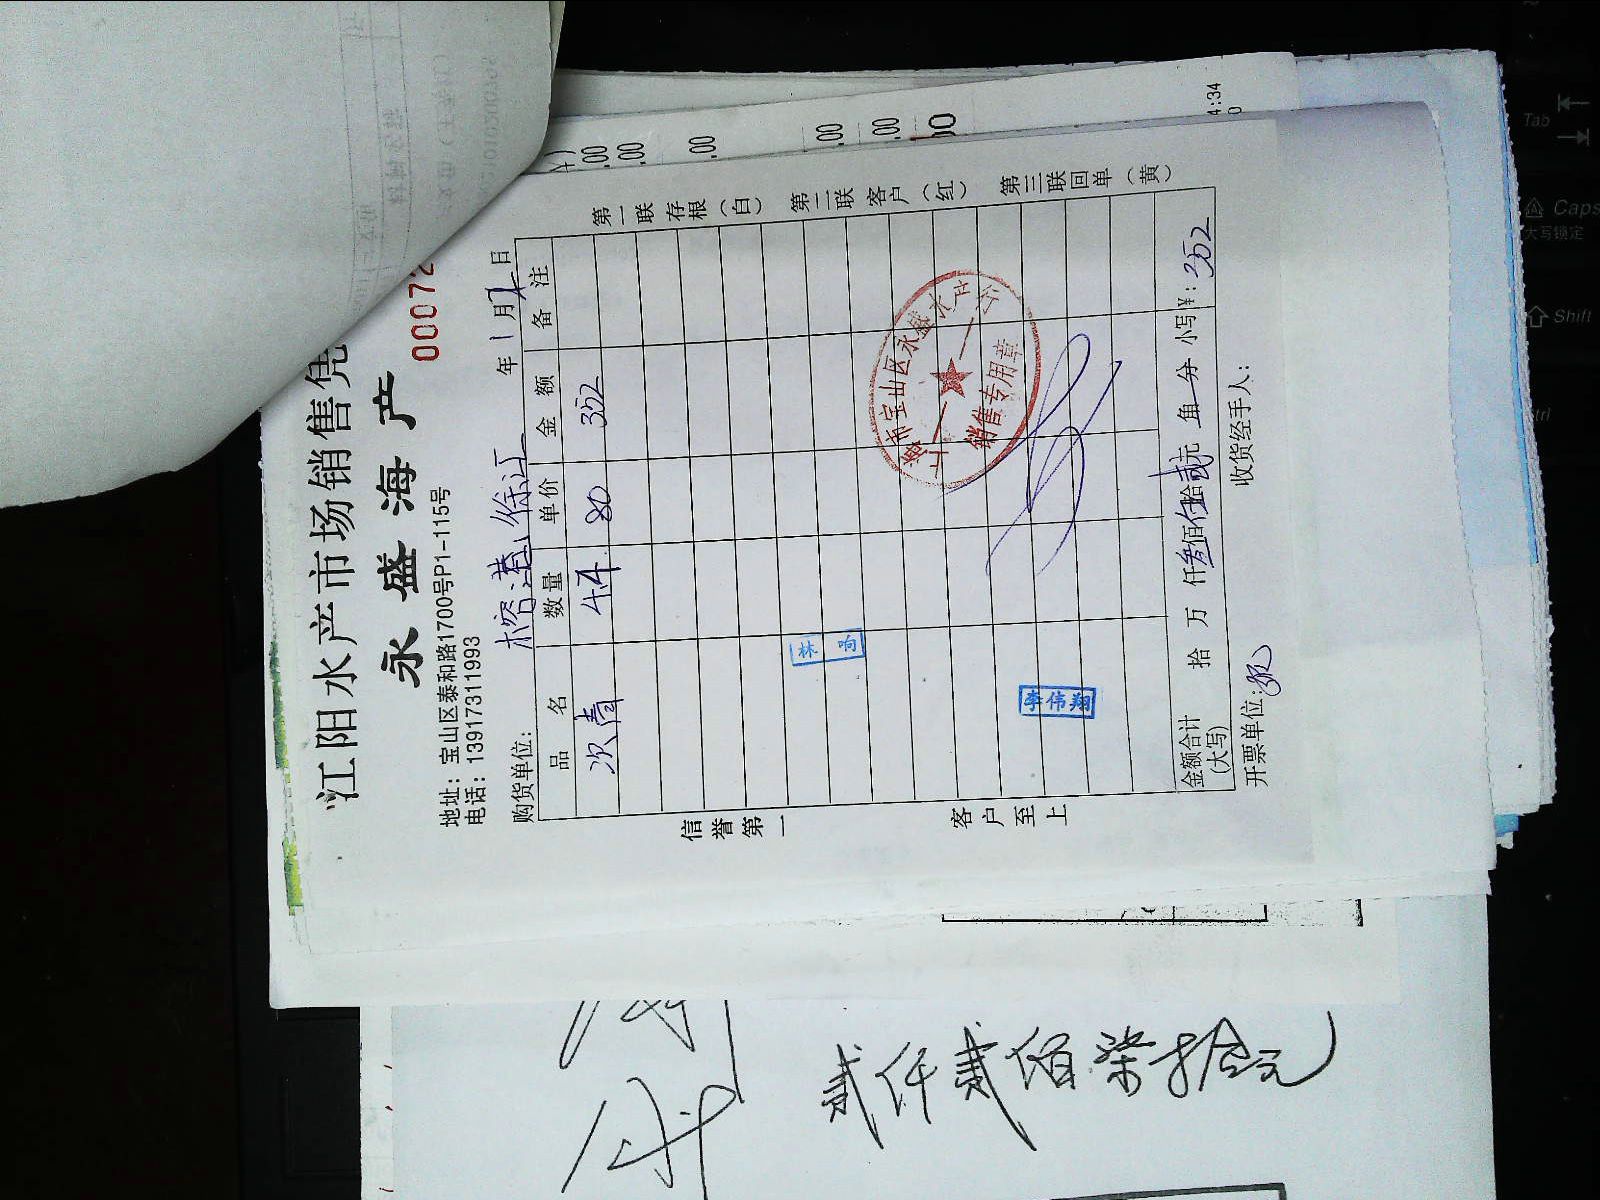 江阳水产市场销售凭
永盛海产
00072
地址：宝山区泰和路1700号P1-115号
电话：13917311993
购货单位：榕港/徐江 年1月2日
品名 数量 单价 金额 备注
次青 4.4 80 352
第一联存根（白） 第二联客户（红） 第三联回单（黄）
信誉第一 客户至上
林响
李伟翔
上海市宝山区永盛水产
销售专用章
金额合计（大写） 拾 万 仟叁佰伍拾贰元 角 分 小写¥：352
开票单位： 收货经手人：
.00
.00
.00
.00
.00
00
4:34
贰仟贰佰柒拾元
Tab
Caps
大写锁定
Shift